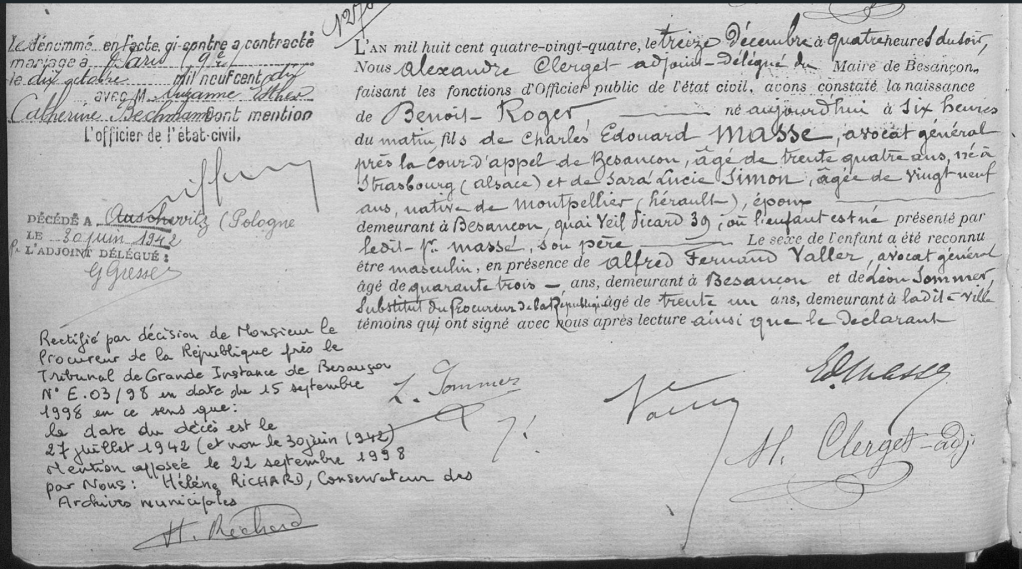 Le dénommé en l'acte ci-contre a contracté
mariage à Paris (9e)
le dix octobre mil neuf cent dix
avec M. Suzanne Esther
Catherine Bechmann Dont mention
L'officier de l'état-civil,
DÉCÉDÉ A Auschwitz (Pologne
LE 30 juin 1942
P. L'ADJOINT DÉLÉGUÉ :
G Gresser
Rectifié par décision de Monsieur le
Procureur de la République près le
Tribunal de Grande Instance de Besançon
N° E.03/98 en date du 15 septembre
1998 en ce sens que :
la date du décès est le
27 juillet 1942 (et non le 30 juin 1942)
Mention apposée le 22 septembre 1998
par Nous : Hélène RICHARD, Conservateur des
Archives municipales
H. Richard
L'AN mil huit cent quatre-vingt-quatre, le treize Décembre à quatre heures du soir,
Nous Alexandre Clerget adjoint-Délégué du Maire de Besançon,
faisant les fonctions d'Officier public de l'état civil, avons constaté la naissance
de Benoit-Roger, né aujourd'hui à Six heures
du matin, fils de Charles Edouard Masse, avocat général
près la Cour d'appel de Besançon, âgé de trente quatre ans, né à
Strasbourg (alsace) et de Sara Lucie Simon, âgée de vingt neuf
ans, native de Montpellier (hérault), époux
demeurant à Besançon, quai Veil Picard 39 ; où l'enfant est né présenté par
ledit Sr. massé, son père Le sexe de l'enfant a été reconnu
être masculin, en présence de Alfred Fernand Valler, avocat général
âgé de quarante trois - ans, demeurant à Besançon et de Léon Sommer,
Substitut du Procureur de la République âgé de trente un ans, demeurant à ladite ville
témoins qui ont signé avec nous après lecture ainsi que le Déclarant
L. Sommer
Ed. Masse
Clerget-adj